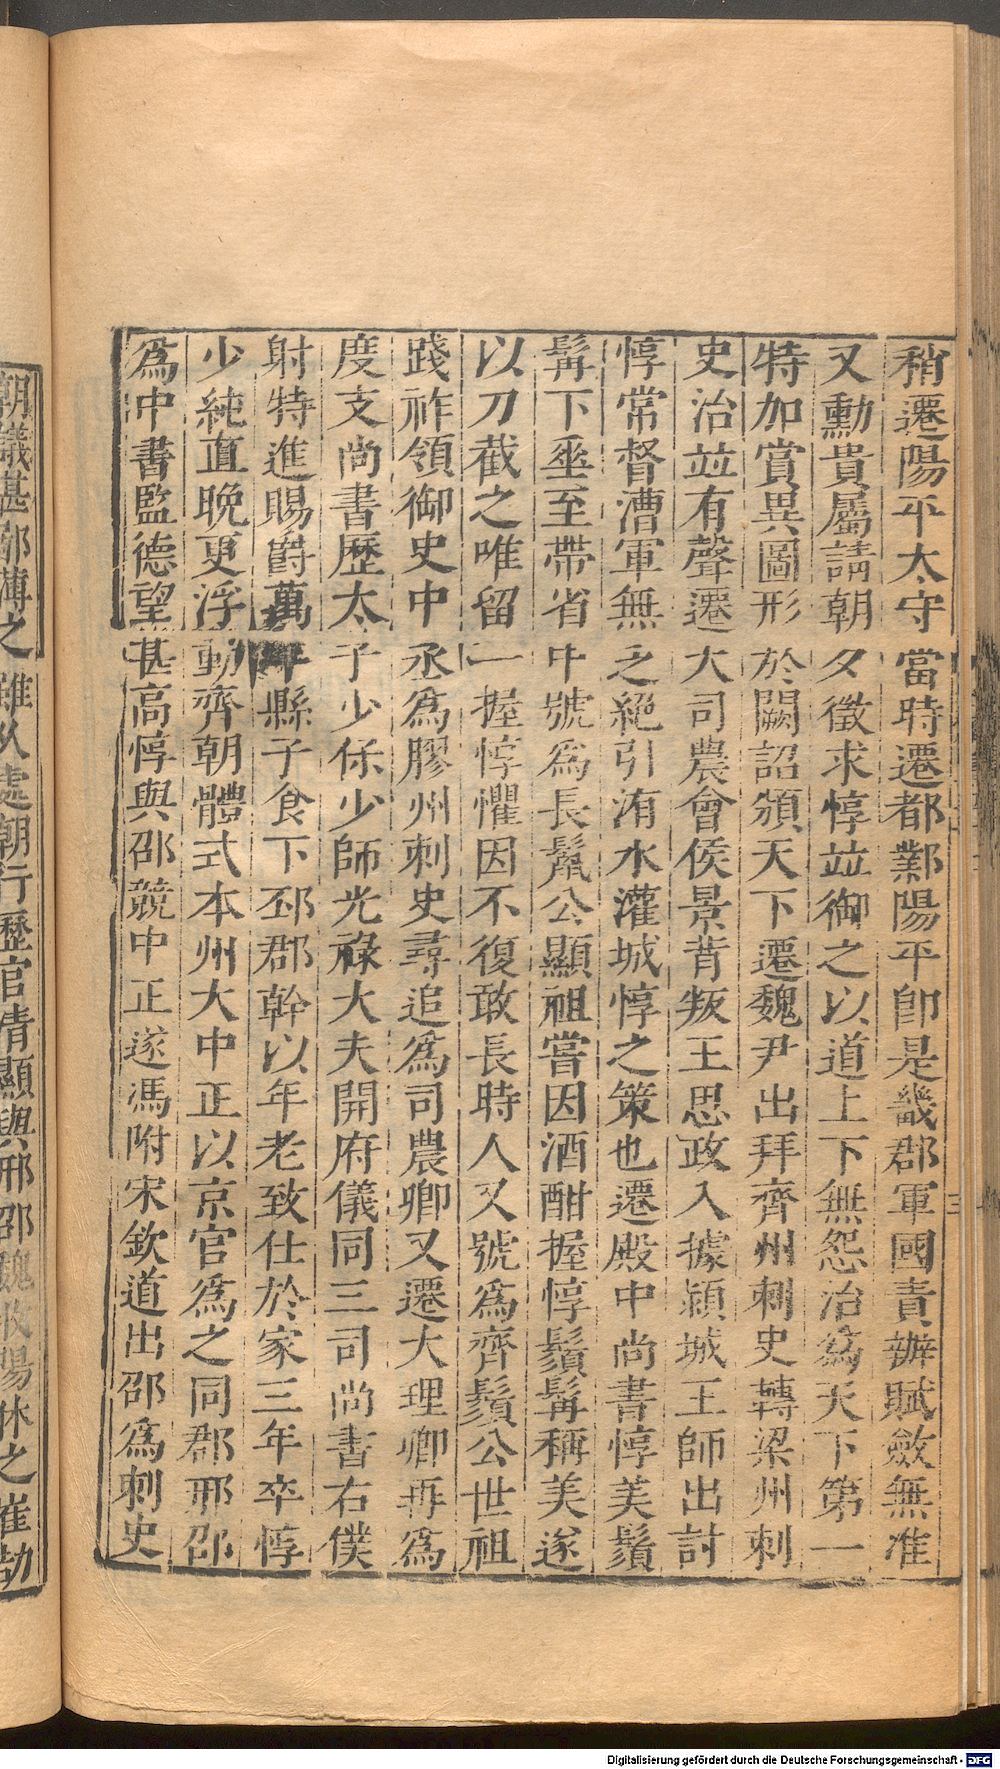 稍遷陽平太守當時遷都鄴陽平卽是畿郡軍國責辦賦斂無准
又勳貴屬請朝夕徵求惇竝御之以道上下無怨治爲天下第一
特加賞異圖形於闕詔頒天下遷魏尹出拜齊州刺史轉梁州刺
史治竝有聲遷大司農會侯景背叛王思政入據潁城王師出討
惇常督漕軍無之絕引洧水灌城惇之策也遷殿中尚書惇美鬚
髯下垂至帶省中號爲長鬣公顯祖嘗因酒酣握惇鬚髯稱美遂
以刀截之唯留一握惇懼因不復敢長時人又號爲齊鬚公世祖
踐祚領御史中丞爲膠州刺史尋追爲司農卿又遷大理卿再爲
度支尚書歷太子少保少師光祿大夫開府儀同三司尚書右僕
射特進賜爵萬年縣子食下邳郡幹以年老致仕於家三年卒惇
少純直晚更浮動齊朝體式本州大中正以京官爲之同郡邢邵
爲中書監德望甚高惇與邵競中正遂馮附宋欽道出邵爲刺史
朝議甚鄙薄之雖久處朝行歷官清顯與邢邵魏收陽休之崔劼
Digitalisierung gefördert durch die Deutsche Forschungsgemeinschaft - DFG